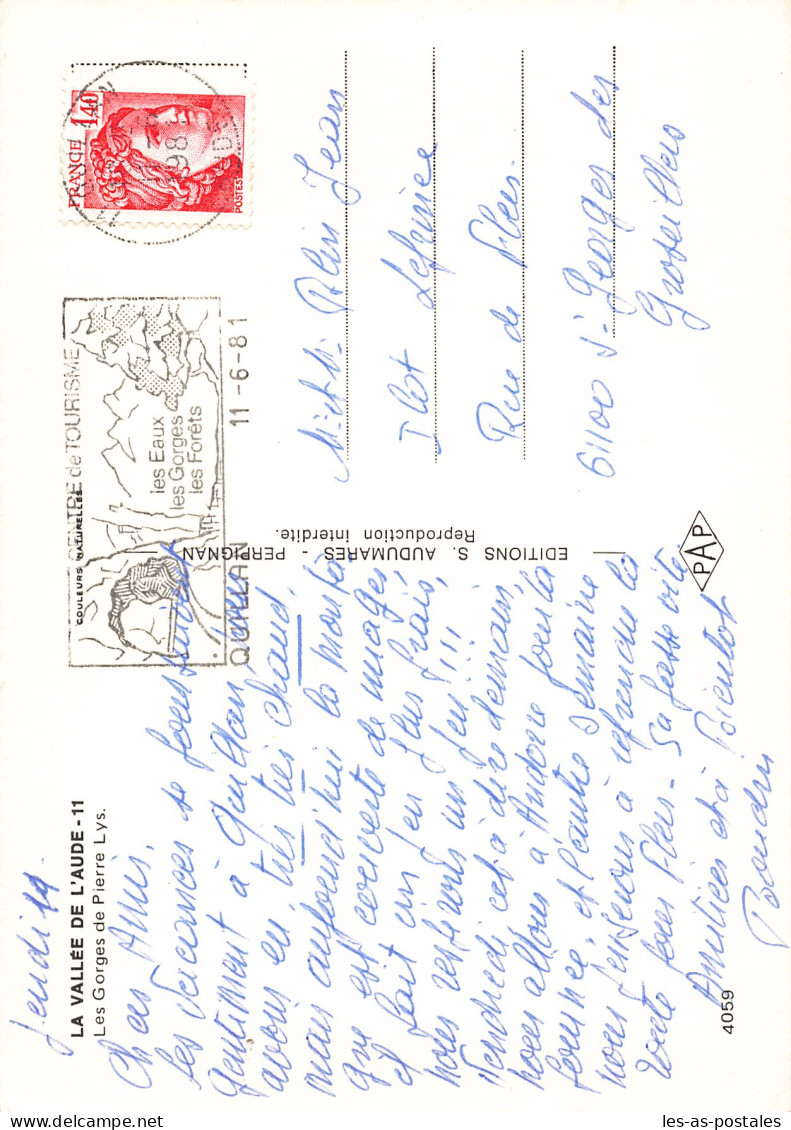 LA VALLÉE DE L'AUDE - 11
Les Gorges de Pierre Lys.
Jeudi 11
Chers Amis,
les vacances se poursuivent
gentiment à Quillan, nous
avons eu très très chaud,
mais aujourd'hui la monta
gne est couverte de nuages
et fait un peu plus frais,
nous respirons un peu!!!
Vendredi cet à dire demain,
nous allons à Andorre pour la
journée, et l'autre semaine
nous penserons à reprendre la
route pour Flers - Sa passe vite
Amitiés et à Bientot
4059
EDITIONS S. AUDUMARES - PERPIGNAN
Reproduction interdite.
COULEURS NATURELLES
PAP
FRANCE 1,40
POSTES
CENTRE de TOURISME
les Eaux
les Gorges
les Forêts
QUILLAN 11-6-81
M. et Mme Jean
Ilot
Rue de Flers.
61100 St Georges des
Groseillers
les-as-postales